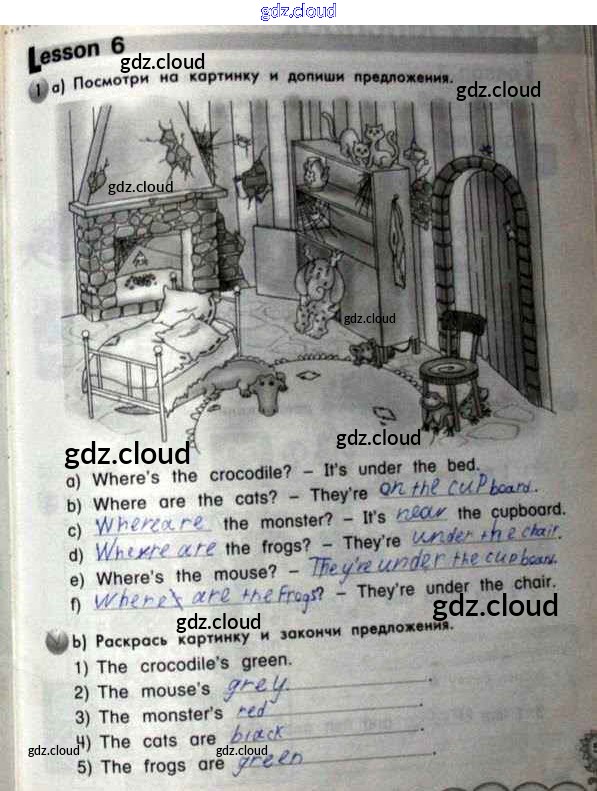 gdz.cloud
Lesson 6
gdz.cloud
1 a) Посмотри на картинку и допиши предложения.
gdz.cloud
gdz.cloud
gdz.cloud
gdz.cloud
gdz.cloud
a) Where's the crocodile? – It's under the bed.
b) Where are the cats? – They're on the cupboard.
c) Where are the monster? – It's near the cupboard.
d) Where are the frogs? – They're under the chair.
e) Where's the mouse? – They're under the cupboard.
f) Where are the frogs? – They're under the chair.
gdz.cloud
gdz.cloud
b) Раскрась картинку и закончи предложения.
1) The crocodile's green.
2) The mouse's grey.
3) The monster's red.
4) The cats are black.
gdz.cloud
gdz.cloud
gdz.cloud
5) The frogs are green.